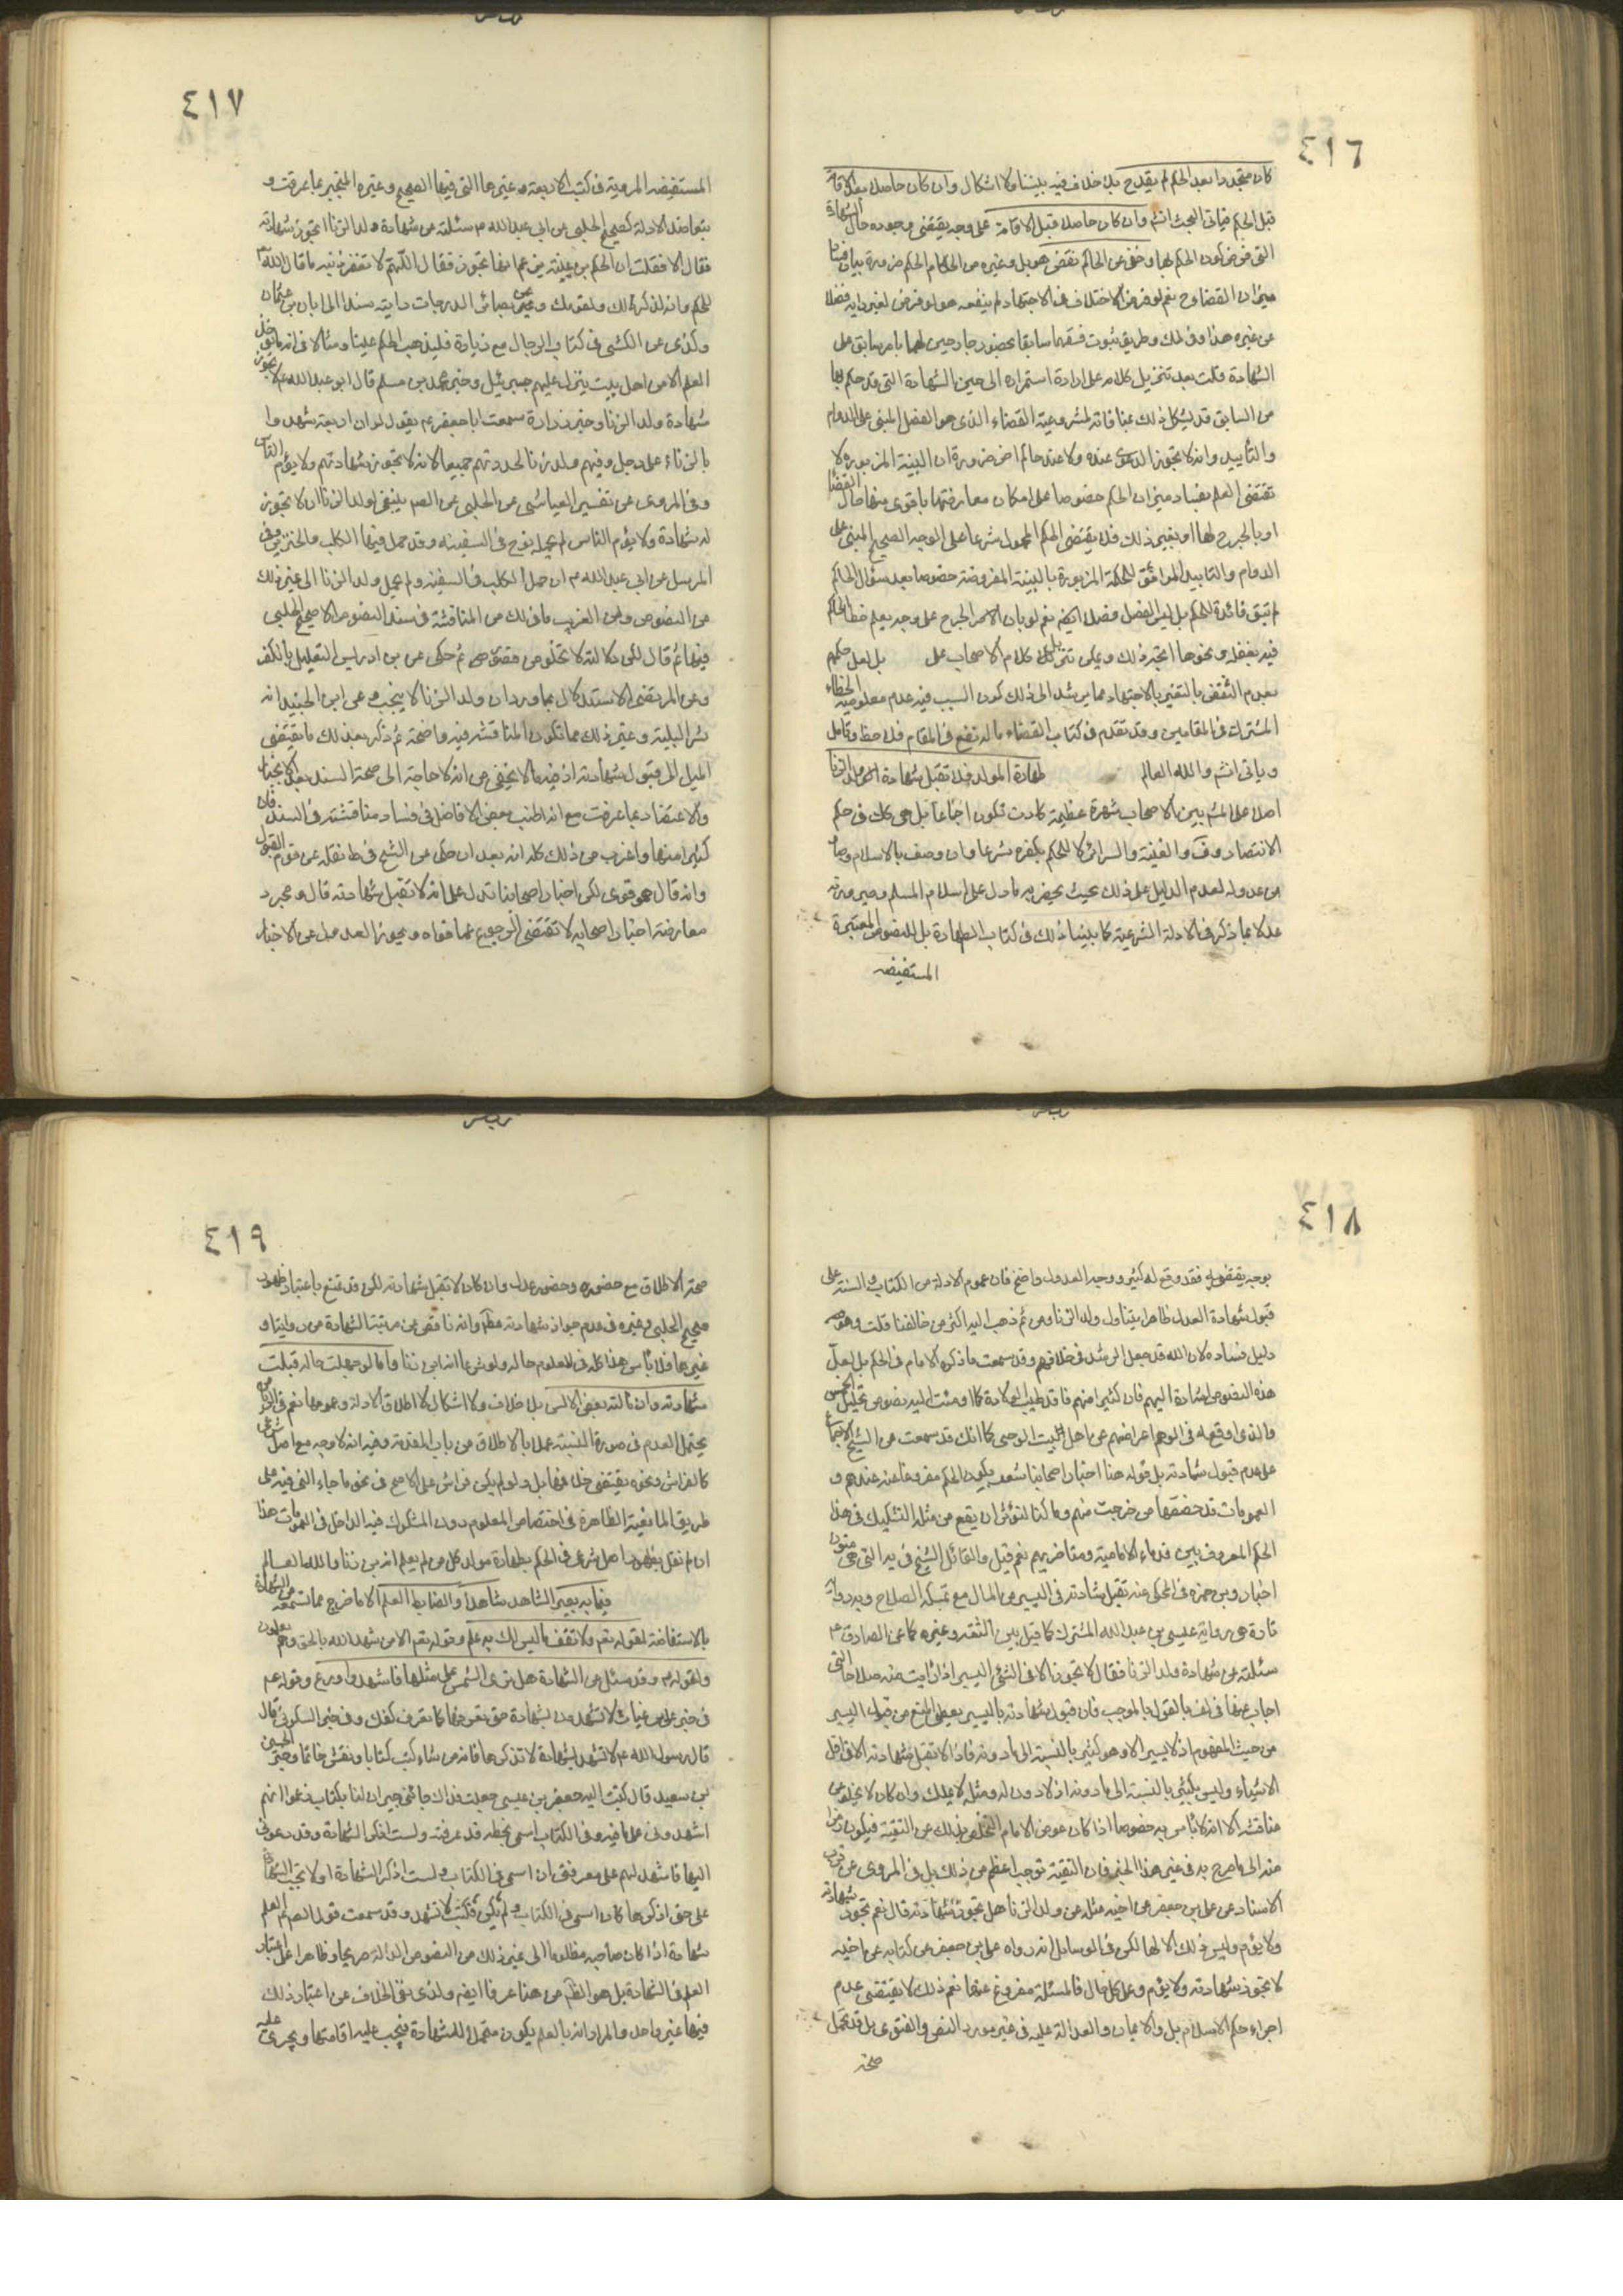 ٤١٦
كان متجددا بعد الحكم لم يقدح بلا خلاف فيه بيننا ولا اشكال وان كان حاصلا بعد الاقامة
قبل الحكم فياتى البحث انشم وان كان حاصلا قبل الاقامة على وجه يقتضى وجوده حال الشهادة
التى فرض كون الحكم بها وخفى عن الحاكم نقض هو بل وغيره من الحكام الحكم ضرورة بيان فساد
ميزان القضاء ح نعم لو فرض الاختلاف فى الاجتهاد لم ينقضه هو لو فرض تغير رايه فضلا
عن غيره هذا وفى لك وطريق ثبوت فسقهما سابقا بحضور جارحين لهما بامر سابق على
الشهادة قلت بعد تنزيل كلامه على ارادة استمراره الى حين الشهادة التى قد حكم بها
من السابق قد يشكل ذلك بمنافاته لمشروعية القضاء الذى هو الفصل المبنى على الدوام
والتأييد وانه لا تجوز الدعوى عنده ولا عند حاكم اخر ضرورة ان البينة المزبورة لا
تقتضى العلم بفساد ميزان الحكم خصوصا على امكان معارضتها باقوى منها حال القضاء
او بالجرح لها او بغير ذلك فلا يقتضى الحكم المحمول شرعا على الوجه الصحيح المبنى على
الدوام والتابيد الموافق لحكمة المزبورة بالبينة المفروضة خصوصا بعد سؤال الحاكم
لم تبق فائدة للحكم بل ليس الفصل فصلا ايضا نعم لو بان الامر الجرح على وجه يعلم خطأ الحاكم
فيه بغفلة ونحوها اتجه ذلك ويمكن تنزيل كلام الاصحاب على بل لعل حكمهم
بعدم النقض بالتغير بالاجتهاد مما يرشد الى ذلك كون السبب فيه عدم معلومية الخطاء
المشترك فى المقامين وقد تقدم فى كتاب القضاء ماله نفع فى المقام فلاحظ وتامل
وياتى انشم والله العالم طهارة المولد فلا تقبل شهادة ولد الزنا
اصلا على المش بين الاصحاب شهرة عظيمة كادت تكون اجماعا بل هى كك فى حكم
الانتصار وف والغنية والسرائر لا للحكم بكفره شرعا وان وصف بالاسلام وصار
من عدوله لعدم الدليل على ذلك بحيث يخص به ما دل على اسلام المسلم وصيرورته
عدلا بما ذكر فى الادلة الشرعية كما بيناه ذلك فى كتاب الطهارة بل للنصوص المعتبرة
المستفيضه
٤١٧
المستفيضه المروية فى كتب الاربعة وغيرها التى فيها الصحيح وغيره المنجبر بما عرفت و
بتعاضد الادلة كصحيح الحلبى عن ابى عبدالله ع سئلته عن شهادة ولد الزنا اتجوز شهادته
فقال لا فقلت ان الحكم بن عيينة يزعم انها تجوز فقال اللهم لا تغفر ذنبه ما قال الله
للحكم وانه لذكر لك ولقومك وعن بصائر الدرجات روايته مسندا الى ابان بن عثمان
وكذى عن الكشى فى كتاب الرجال مع زيادة فليذهب الحكم يمينا وشمالا فو الله ما يؤخذ
العلم الا من اهل بيت ينزل عليهم جبرئيل وخبر محمد بن مسلم قال ابو عبد الله ع لا تجوز
شهادة ولد الزنا وخبر زرارة سمعت ابا جعفر ع يقول لو ان اربعة شهدوا
بالزناء على رجل وفيهم ولد زنا لحددتهم جميعا لانه لا تجوز شهادتهم ولا يؤم الناس
وفى المروى عن تفسير العياشى عن الحلبى عن الصم ينبغى لولد الزنا ان لا تجوز
له شهادة ولا يؤم الناس لم يحمله نوح فى السفينه وقد حمل فيها الكلب والخنزير وفى
المرسل عن ابى عبدالله ع ان نوحا حمل الكلب فى السفينه ولم يحمل ولد الزنا الى غير ذلك
من النصوص ومن الغريب ما فى لك من المناقشة فى سند النصوص الا صحيح الحلبى
فيها ثم قال لكن دلالته لا تخلو من قصور ثم حكى عن بن ادريس التعليل بالكفر
وعن المرتضى الاستدلال بما ورد ان ولد الزنا لا ينجب وعن ابن الجنيد انه
شر الثلثة وغير ذلك مما تكون المناقشه فيه واضحة ثم ذكر بعد ذلك ما يقتضى
الميل الى قبول شهادته اذ فيه ما لا يخفى من انه لا حاجة الى صحة السند بعد الانجبار
والاعتضاد بما عرفت مع انه اطنب بعض الافاضل فى فساد مناقشته فى السند فى
كثير منها واغرب من ذلك كله انه بعد ان حكى عن الشيخ فى ط نقله عن قوم القبول
وانه قال هو قوى لكن اخبار اصحابنا تدل على انه لا تقبل شهادته قال ومجرد
معارضة اخبار اصحابه لا تقتضى الرجوع عما قواه ويجوز العدول عن الاخبار
٤١٨
بوجه يقتضيه فقد وقع له كثير ووجه العدول واضح فان عموم الادلة من الكتاب والسنة على
قبول شهادة العدل ظاهرا يتناول ولد الزنا ومن ثم ذهب اليه اكثر من خالفنا قلت وهو
دليل فساده لان الله قد جعل الرشد فى خلافهم وقد سمعت ما ذكره الامام فى الحكم بل لعل
هذه النصوص اشارة اليهم فان كثيرا منهم فاقد طيب الولادة كما اومئت اليه نصوص تحليل الخمس
والذى اوقعه فى الوهم اعراضهم عن اهل البيت الوحى كما انك قد سمعت من الشيخ الاجماع
على عدم قبول شهادته بل قوله هنا اخبار اصحابنا مشعر بكون الحكم مفروغا عنه عندهم و
العمومات قد خصصها من خرجت منهم وما كنا لنؤثر ان يقع من مثله التشكيك فى هذا
الحكم المعروف بين قدماء الامامية ومتاخريهم نعم قيل والقائل الشيخ فى يه التى هى متون
اخبار وبن حمزه فى المحكى عنه تقبل شهادته فى اليسير من المال مع تمسكه بالصلاح وبه رواية
نادرة هى رواية عيسى بن عبد الله المشترك كما قيل بين الثقة وغيره كما عن الصادق ع
سئلته عن شهادة ولد الزنا فقال لا تجوز الا فى الشئ اليسير اذا رايت منه صلاحا التى
اجاب عنها فى لف بالقول بالموجب فان قبول شهادته باليسير يعطى المنع من قبول اليسير
من حيث المفهوم اذ لا يسير الا وهو كثير بالنسبة الى ما دونه فاذا لا تقبل شهادته الا فى اقل
الاشياء وليس بكثير بالنسبة الى ما دونه اذ لا دون له ومثله لا يملك وان كان لا يخلو من
مناقشه الا انه لا باس به خصوصا اذا كان غرض الامام التخلص بذلك عن التقية فيكون رمزا
منه الى ما صرح به فى غير هذا الخبر فان التقية توجب اعظم من ذلك بل فى المروى عن قرب
الاسناد عن على بن جعفر عن اخيه مثله عن ولد الزنا هل تجوز شهادته قال نعم تجوز شهادته
ولا يؤم وليس ذلك الا لها لكن فى الوسايل انه رواه على بن جعفر عن كتابه عن اخيه
لا تجوز شهادته ولا يؤم وعلى كل حال فالمسئلة مفروغ عنها نعم ذلك لا يقتضى عدم
اجراء حكم الاسلام بل والايمان والعدالة عليه فى غير مورد النص والفتوى بل قد يحتمل
صحة
٤١٩
صحة الاطلاق مع حضوره وحضور عدل وان كان لا تقبل شهادته لكن قد تمنع باعتبار ظهور
صحيح الحلبى وغيره فى عدم جواز شهادته مطلقا وانه ناقص عن مرتبة الشهادة من رواية او
غيرها فلا باس هذا كله فى المعلوم حاله ولو شرعا انه ابن زنا واما لو جهلت حاله قبلت
شهادته وان نالته بعض الالسن بلا خلاف ولا اشكال لاطلاق الادلة وعمومها نعم
يحتمل العدم فى صورة النسبة عملا بالاطلاق من باب المقدمة وفيه انه لا وجه مع اصل شرعى
كالفراش ونحوه يقتضى خلافها بل ولو لم يكن فراش على الاصح فى نحو ما جاء النهى فيه على
طريق المانعية الظاهرة فى اختصاص المعلوم دون المشكوك فيه الداخل فى العمومات هذا
ان لم نقل بظهور اصل شرعى فى الحكم بطهارة مولد كل من لم يعلم انه بن زنا والله العالم
فيما به يصير الشاهد شاهدا والضابط العلم الا ما خرج مما تسمعه من الشهادة
بالاستفاضة لقوله تعم ولا تقف ما ليس لك به علم وقوله تعم الا من شهد الله بالحق وهم يعلمون
ولقوله ع وقد سئل عن الشهادة هل ترى الشمس على مثلها فاشهد او دع وقوله عم
فى خبر على بن غياث لا تشهدن بشهادة حتى تعرفها كما تعرف كفك وفى خبر السكونى قال
قال رسول الله ع لا تشهد بشهادة لا تذكرها فانه من شاء كتب كتابا ونقش خاتما وخبر الحسين
بن سعيد قال كتب اليه جعفر بن عيسى جعلت فداك جائنى جيران لنا بكتاب زعموا انهم
اشهدونى على ما فيه وفى الكتاب اسمى بخطى قد عرفته ولست اذكر الشهادة وقد دعونى
اليها فاشهد لهم على معرفتى ان اسمى فى الكتاب ولست اذكر الشهادة او لا تجب الشهادة
على حتى اذكرها كان اسمى فى الكتاب او لم يكن فكتب لا تشهد وقد سمعت قول الصم لم العلم
شهادة اذا كان صاحبه مظلوما الى غير ذلك من النصوص الدالة صريحا وظاهرا على اعتبار
العلم فى الشهادة بل هو الظاهر من هنا عرفا ايضا ولذى نفى الخلاف عن اعتبار ذلك
فيها غير واحد والمراد انه بالعلم يكون متحملا للشهادة فيجب عليه اقامتها ويجرى عليه